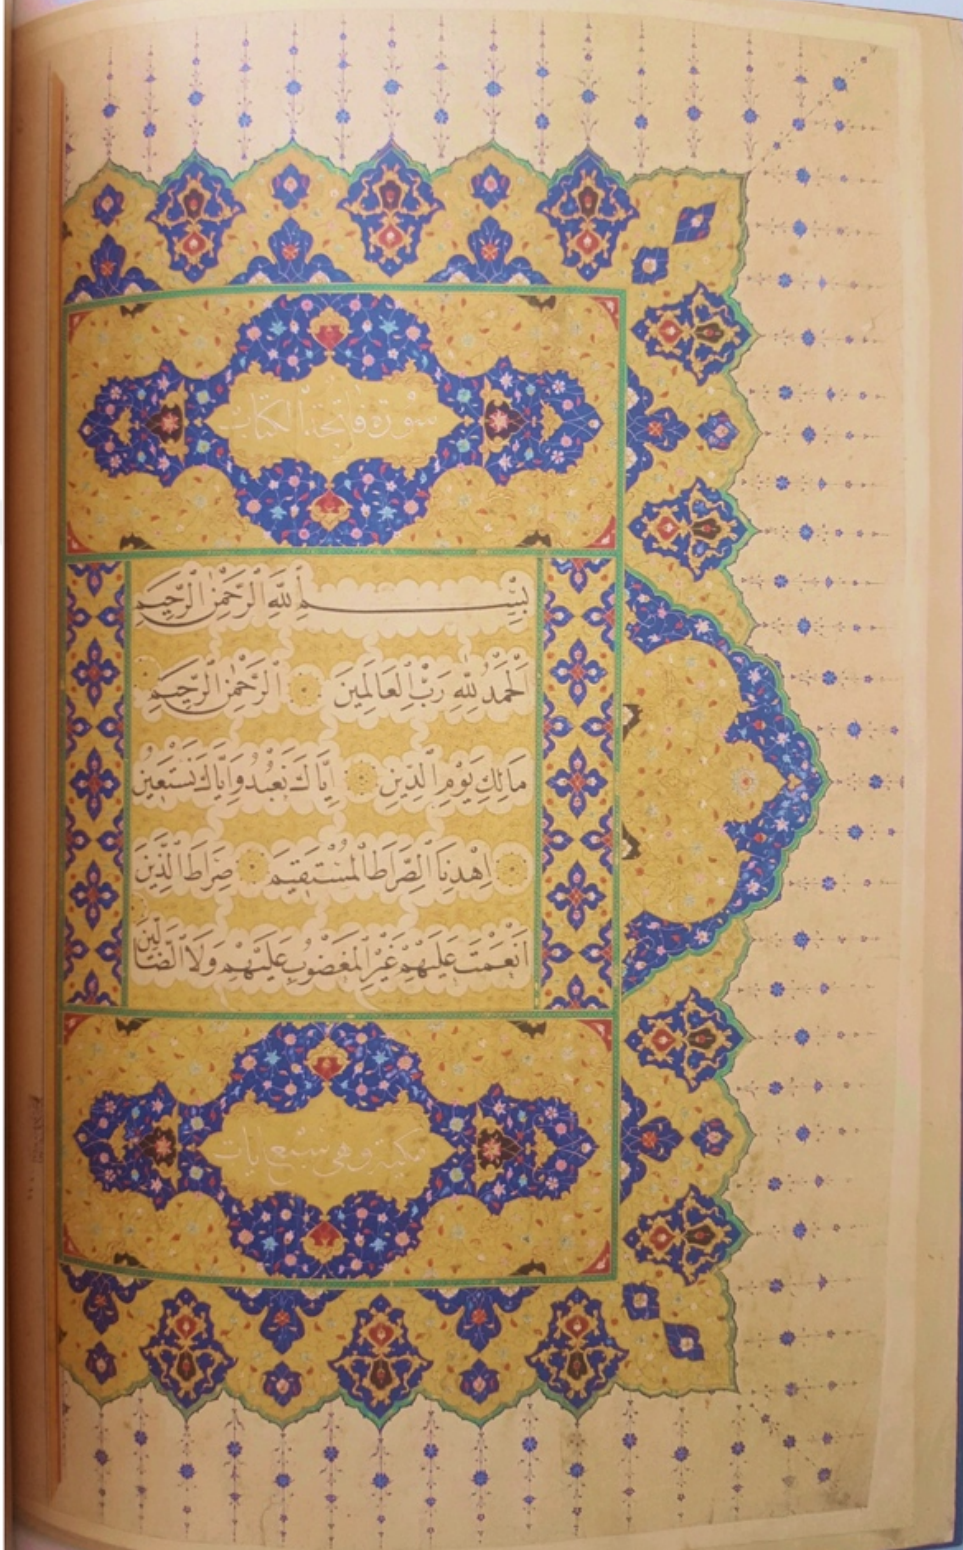 سورة فاتحة الكتاب
بِسْمِ اللّٰهِ الرَّحْمٰنِ الرَّحِيمِ
اَلْحَمْدُ لِلّٰهِ رَبِّ الْعَالَمِينَ الرَّحْمٰنِ الرَّحِيمِ
مَالِكِ يَوْمِ الدِّينِ اِيَّاكَ نَعْبُدُ وَاِيَّاكَ نَسْتَعِينُ
اِهْدِنَا الصِّرَاطَ الْمُسْتَقِيمَ صِرَاطَ الَّذِينَ
اَنْعَمْتَ عَلَيْهِمْ غَيْرِ الْمَغْضُوبِ عَلَيْهِمْ وَلَا الضَّالِّينَ
مكية وهي سبع ايات